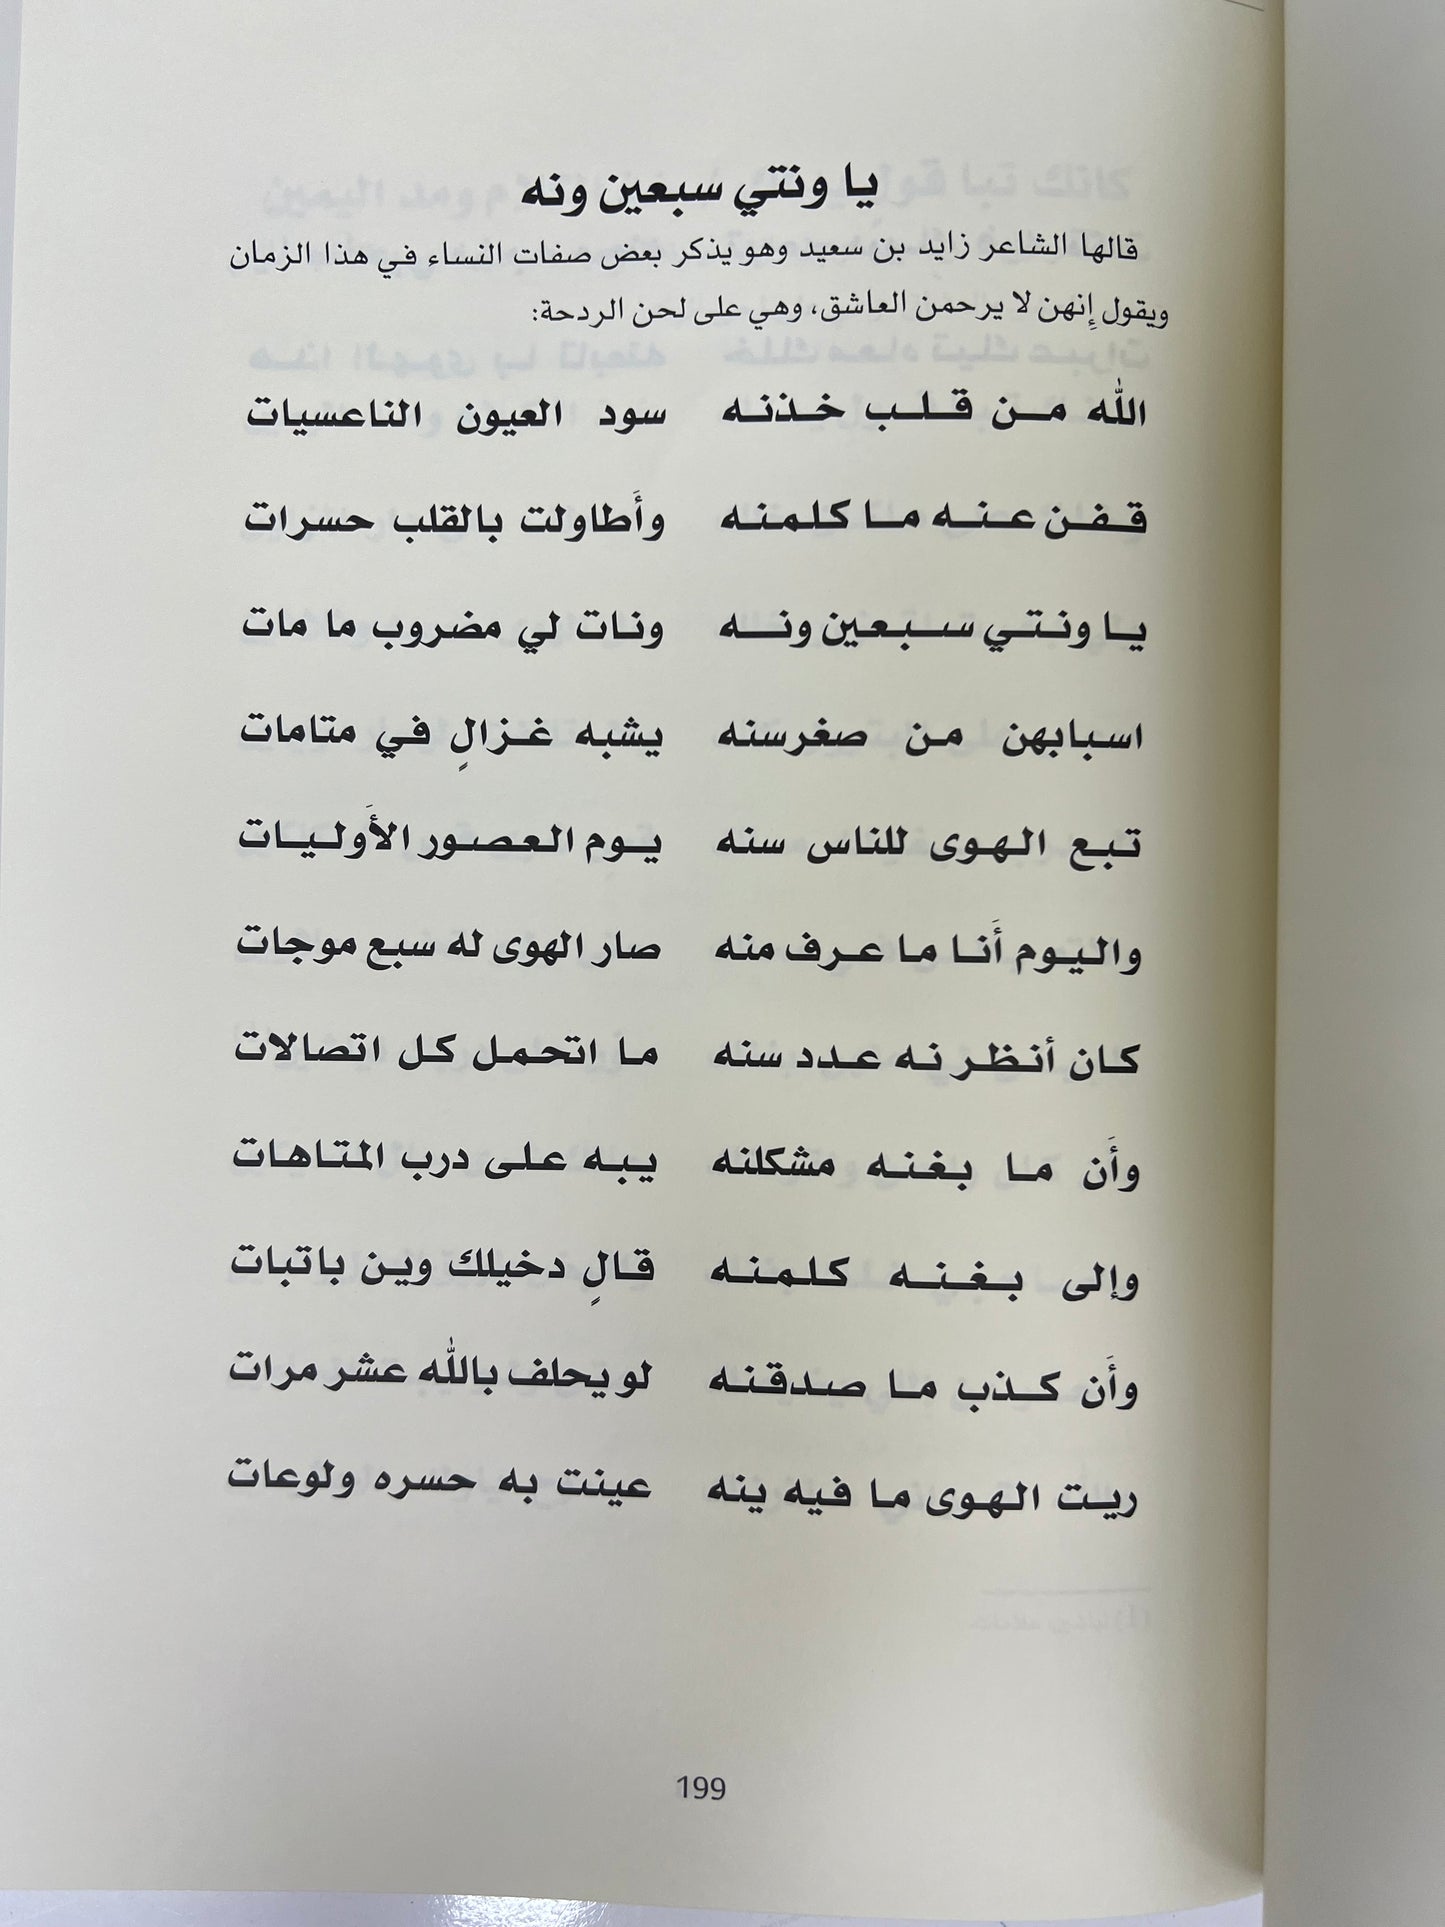 يا ونتي سبعين ونه
قالها الشاعر زايد بن سعيد وهو يذكر بعض صفات النساء في هذا الزمان
ويقول إنهن لا يرحمن العاشق، وهي على لحن الردحة:
الله من قلب خذنه سود العيون الناعسيات
قفن عنه ما كلمنه وأَطاولت بالقلب حسرات
يا ونتي سبعين ونه ونات لي مضروب ما مات
اسبابهن من صغرسنه يشبه غزالٍ في متامات
تبع الهوى للناس سنه يوم العصور الأَوليات
واليوم أَنا ما عرف منه صار الهوى له سبع موجات
كان أنظر نه عدد سنه ما اتحمل كل اتصالات
وأَن ما بغنه مشكلنه يبه على درب المتاهات
وإلى بغنه كلمنه قالٍ دخيلك وين باتبات
وأَن كذب ما صدقنه لو يحلف بالله عشر مرات
ريت الهوى ما فيه ينه عينت به حسره ولوعات
199